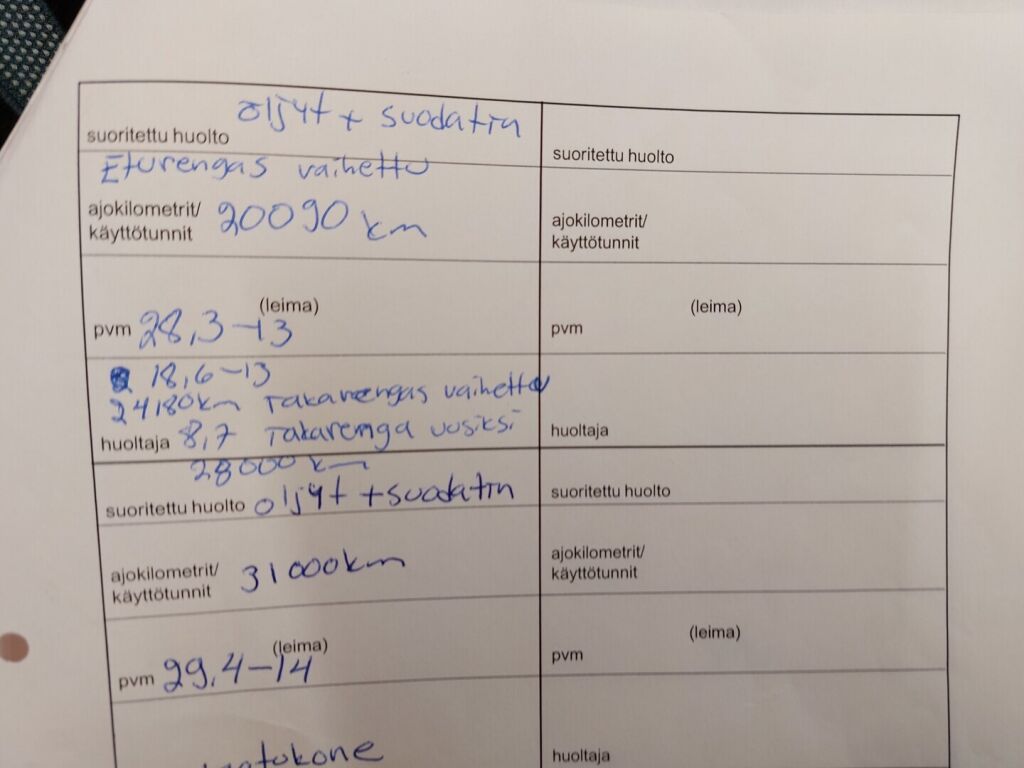 suoritettu huolto öljyt + suodatin
Eturengas vaihettu
ajokilometrit/
käyttötunnit 20090 km
(leima)
pvm 28,3-13
18,6-13
24180km Takarengas vaihettu
huoltaja 8,7 Takarenga uusiksi
28000 km
suoritettu huolto öljyt + suodatin
ajokilometrit/
käyttötunnit 31000km
(leima)
pvm 29,4-14
suoritettu huolto
ajokilometrit/
käyttötunnit
(leima)
pvm
huoltaja
suoritettu huolto
ajokilometrit/
käyttötunnit
(leima)
pvm
huoltaja